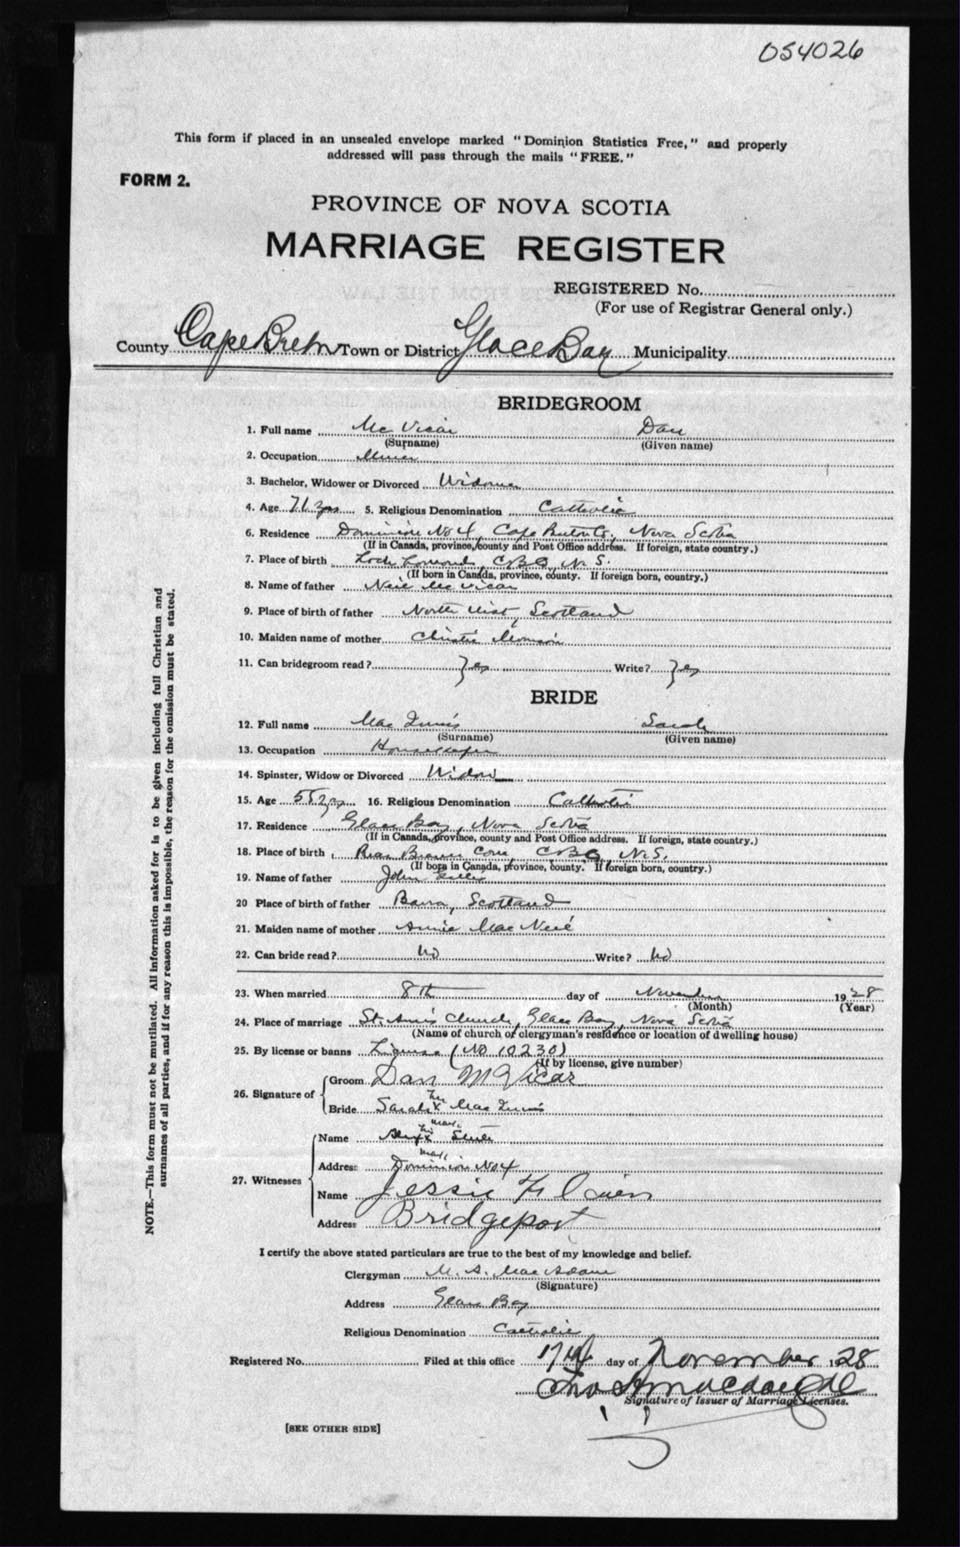 054026
This form if placed in an unsealed envelope marked "Dominion Statistics Free," and properly
addressed will pass through the mails "FREE."
FORM 2.
PROVINCE OF NOVA SCOTIA
MARRIAGE REGISTER
REGISTERED No.
(For use of Registrar General only.)
County Cape Breton Town or District Glace Bay Municipality
BRIDEGROOM
1. Full name Mc Vicar Dan
(Surname) (Given name)
2. Occupation Miner
3. Bachelor, Widower or Divorced Widower
4. Age 71 yrs 5. Religious Denomination Catholic
6. Residence Dominion No 4, Cape Breton Co, Nova Scotia
(If in Canada, province, county and Post Office address. If foreign, state country.)
7. Place of birth Loch Lomond, C B Co, N. S.
(If born in Canada, province, county. If foreign born, country.)
8. Name of father Neil Mc Vicar
9. Place of birth of father North Uist, Scotland
10. Maiden name of mother Christie Morrison
11. Can bridegroom read? Yes Write? Yes
BRIDE
12. Full name Mac Innis Sarah
(Surname) (Given name)
13. Occupation Housekeeper
14. Spinster, Widow or Divorced Widow
15. Age 55 yrs 16. Religious Denomination Catholic
17. Residence Glace Bay, Nova Scotia
(If in Canada, province, county and Post Office address. If foreign, state country.)
18. Place of birth Rear Cove, C B Co N. S.
(If born in Canada, province, county. If foreign born, country.)
19. Name of father John
20 Place of birth of father Barra, Scotland
21. Maiden name of mother Annie Mac Neil
22. Can bride read? No Write? No
23. When married 8th day of November 1928
(Month) (Year)
24. Place of marriage St. Ann's Church, Glace Bay, Nova Scotia
(Name of church or clergyman's residence or location of dwelling house)
25. By license or banns License (No 10230)
(If by license, give number)
26. Signature of
Groom Dan McVicar
her
Bride Sarah X Mac Innis
mark
27. Witnesses
his
Name X
mark
Address Dominion No 4
Name Jessie
Address Bridgeport
I certify the above stated particulars are true to the best of my knowledge and belief.
Clergyman M. A. Mac Adam
(Signature)
Address Glace Bay
Religious Denomination Catholic
Registered No. Filed at this office 17th day of November 1928
Signature of Issuer of Marriage Licenses.
[SEE OTHER SIDE]
NOTE.—This form must not be mutilated. All information asked for is to be given including full Christian and
surnames of all parties, and if for any reason this is impossible, the reason for the omission must be stated.